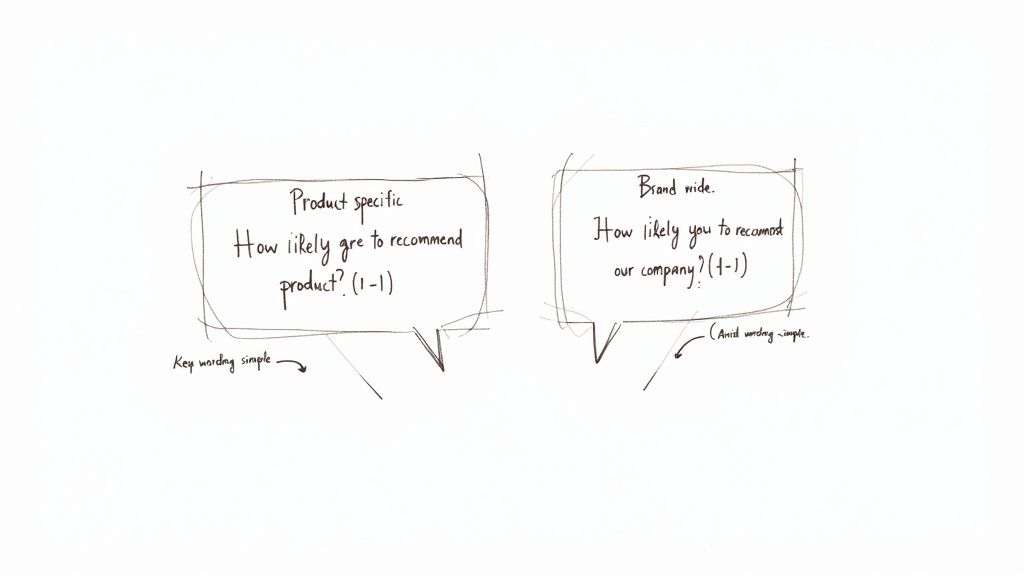 Product specific
How likely gre to recommend
product? (1-1)
Keep wording simple
Brand wide.
How likely you to recommst
our company? (1-1)
(Avoid wording simple.